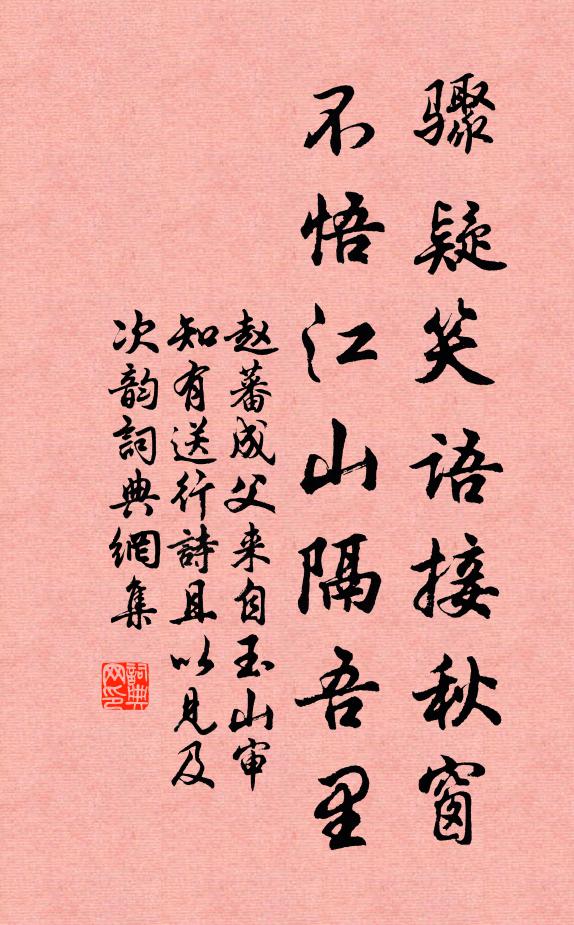 骤疑笑语接秋窗
不悟江山隔吾里
赵蕃成父来自玉山审
知有送行詩且以见及
次韵詞典網集
詞典
网印